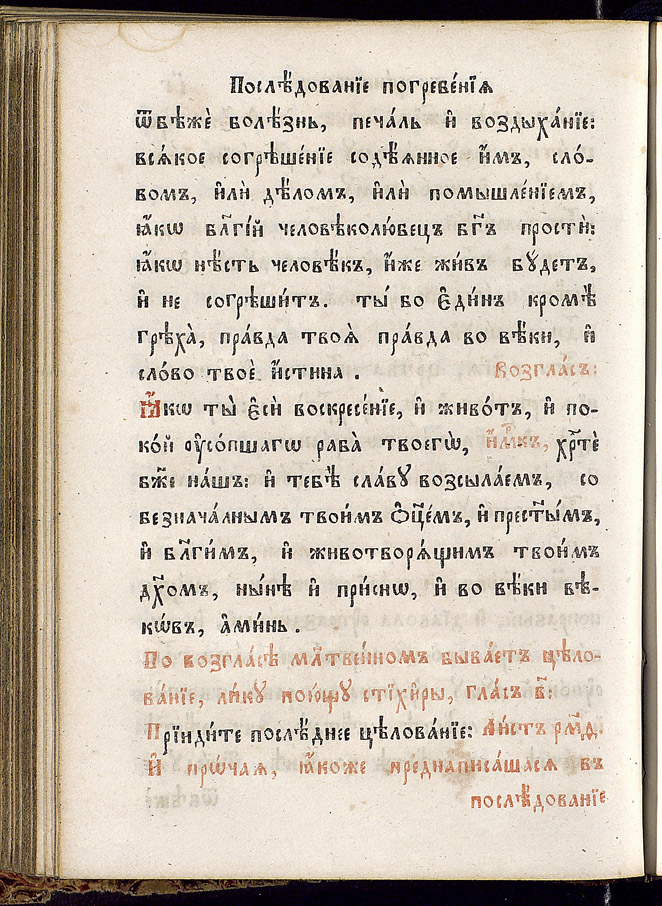 Послѣ́дованїе погребе́нїѧ
ѿбѣжѐ болѣ́знь, печа́ль и҆ воздыха́нїе:
всѧ́кое согрѣше́нїе содѣ́ѧнное и҆́мъ, сло́-
вомъ, и҆лѝ дѣ́ломъ, и҆лѝ помышле́нїемъ,
ꙗ҆́кѡ бл҃гі́й человѣколю́бецъ бг҃ъ простѝ:
ꙗ҆́кѡ нѣ́сть человѣ́къ, и҆́же жи́въ бꙋ́детъ,
и҆ не согрѣши́тъ. ты́ бо є҆ди́нъ кромѣ̀
грѣха̀, пра́вда твоѧ̀ пра́вда во вѣ́ки, и҆
сло́во твоѐ и҆́стина . Возгла́съ:
Ꙗ҆́кѡ ты̀ є҆сѝ воскресе́нїе, и҆ живо́тъ, и҆ по-
ко́й ᲂу҆со́пшагѡ раба̀ твоегѡ̀, и҆м҃къ, хрⷭ҇тѐ
бж҃е на́шъ: и҆ тебѣ̀ сла́вꙋ возсыла́емъ, со
безнача́лнымъ твои́мъ ѻ҆ц҃е́мъ, и҆ прест҃ы́мъ,
и҆ бл҃ги́мъ, и҆ животворѧ́щимъ твои́мъ
дх҃омъ, ны́нѣ и҆ при́снѡ, и҆ во вѣ́ки вѣ-
кѡ́въ, а҆ми́нь .
По возгла́сѣ мл҃твенномъ быва́етъ цѣло-
ва́нїе, ли́кꙋ пою́щꙋ стїхи̑ры, гла́съ в҃:
Прїиди́те послѣ́днее цѣлова́нїе: Ли́стъ рм҃д.
И҆ прѡ́чаѧ, ꙗ҆́коже преднаписа́шасѧ въ
послѣ́дованїе